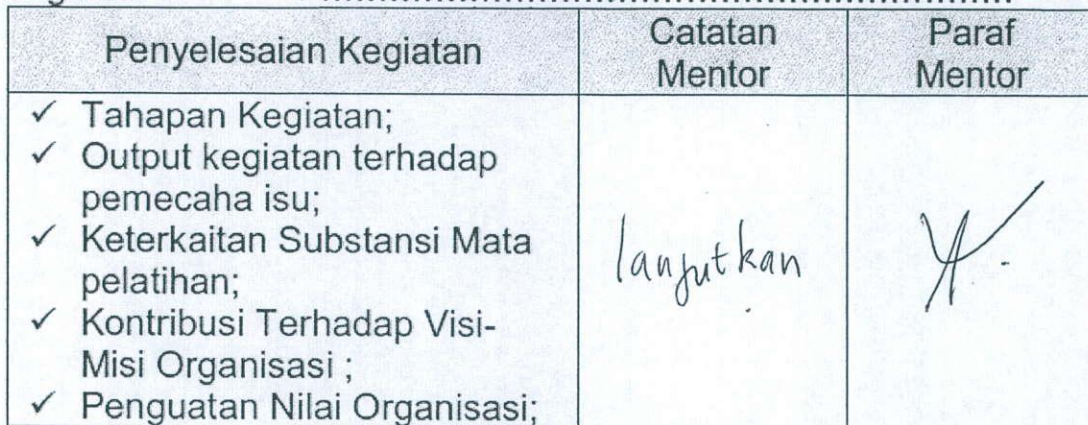 Penyelesaian Kegiatan
Catatan
Mentor
Paraf
Mentor
✓ Tahapan Kegiatan;
✓ Output kegiatan terhadap
pemecaha isu;
✓ Keterkaitan Substansi Mata
pelatihan;
✓ Kontribusi Terhadap Visi-
Misi Organisasi ;
✓ Penguatan Nilai Organisasi;
lanjutkan